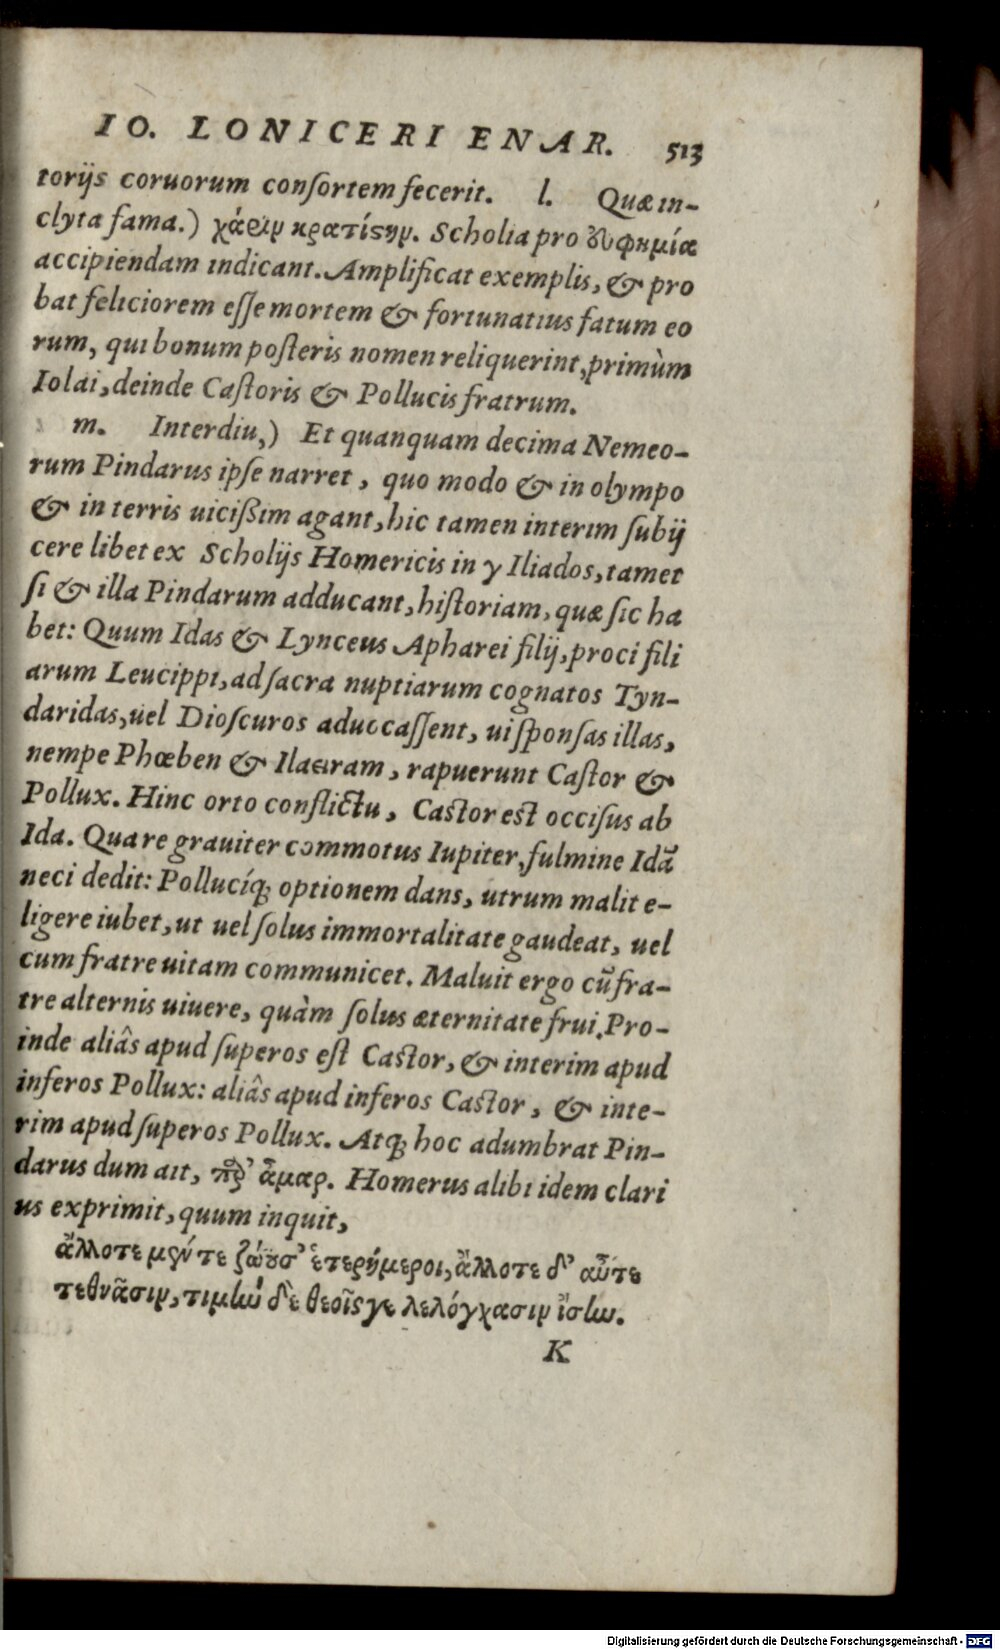 IO. LONICERI ENAR. 513
torijs coruorum consortem fecerit. l. Quæ in-
clyta fama.) χάριν κρατίστην. Scholia pro ευφημία
accipiendam indicant. Amplificat exemplis, & pro
bat feliciorem esse mortem & fortunatius fatum eo
rum, qui bonum posteris nomen reliquerint, primùm
Iolai, deinde Castoris & Pollucis fratrum.
m. Interdiu,) Et quanquam decima Nemeo-
rum Pindarus ipse narret, quo modo & in olympo
& in terris uicißim agant, hic tamen interim subij
cere libet ex Scholijs Homericis in γ Iliados, tamet
si & illa Pindarum adducant, historiam, quæ sic ha
bet: Quum Idas & Lynceus Apharei filij, proci fili
arum Leucippi, ad sacra nuptiarum cognatos Tyn-
daridas, uel Dioscuros aduocassent, ui sponsas illas,
nempe Phœben & Ilaeiram, rapuerunt Castor &
Pollux. Hinc orto conflictu, Castor est occisus ab
Ida. Quare grauiter commotus Iupiter, fulmine Idã
neci dedit: Pollucíq; optionem dans, utrum malit e-
ligere iubet, ut uel solus immortalitate gaudeat, uel
cum fratre uitam communicet. Maluit ergo cũ fra-
tre alternis uiuere, quàm solus æternitate frui. Pro-
inde aliâs apud superos est Castor, & interim apud
inferos Pollux: aliâs apud inferos Castor, & inte-
rim apud superos Pollux. Atq; hoc adumbrat Pin-
darus dum ait, παρ' ἆμαρ. Homerus alibi idem clari
us exprimit, quum inquit,
ἄλλοτε μέν τε ζώουσ' ἑτερήμεροι, ἄλλοτε δ' αὖτε
τεθνᾶσιν, τιμὴν δὲ θεοῖς γε λελόγχασιν ἴσην.
K
Digitalisierung gefördert durch die Deutsche Forschungsgemeinschaft - DFG